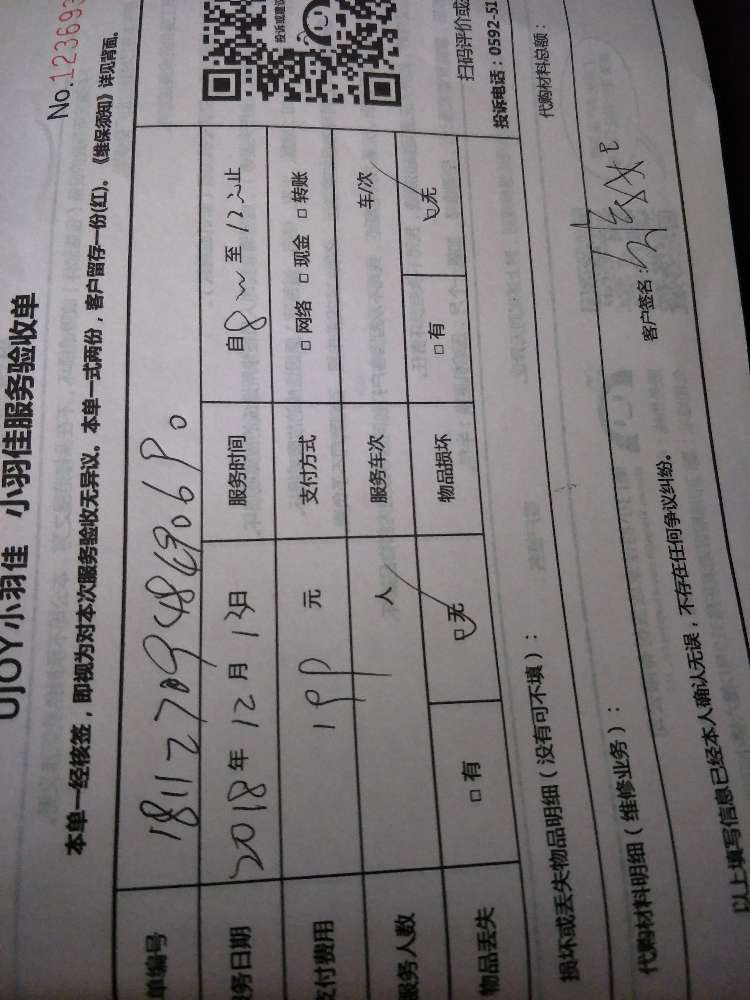 No.123693
UJOY小羽佳 小羽佳服务验收单
本单一经核签，即视为对本次服务验收无异议。本单一式两份，客户留存一份(红)。《维保须知》详见背面。
单编号
务日期 2018年12月13日 服务时间 自8 至12 止
支付费用 199 元 支付方式 □网络 □现金 □转账
服务人数 人 服务车次 车/次
物品丢失 □有 □无 物品损坏 □有 □无
投诉或建议
扫码评价或
投诉电话：0592-51
损坏或丢失物品明细（没有可不填）：
代购材料明细（维修业务）：
代购材料总额：
以上填写信息已经本人确认无误，不存在任何争议纠纷。
客户签名：